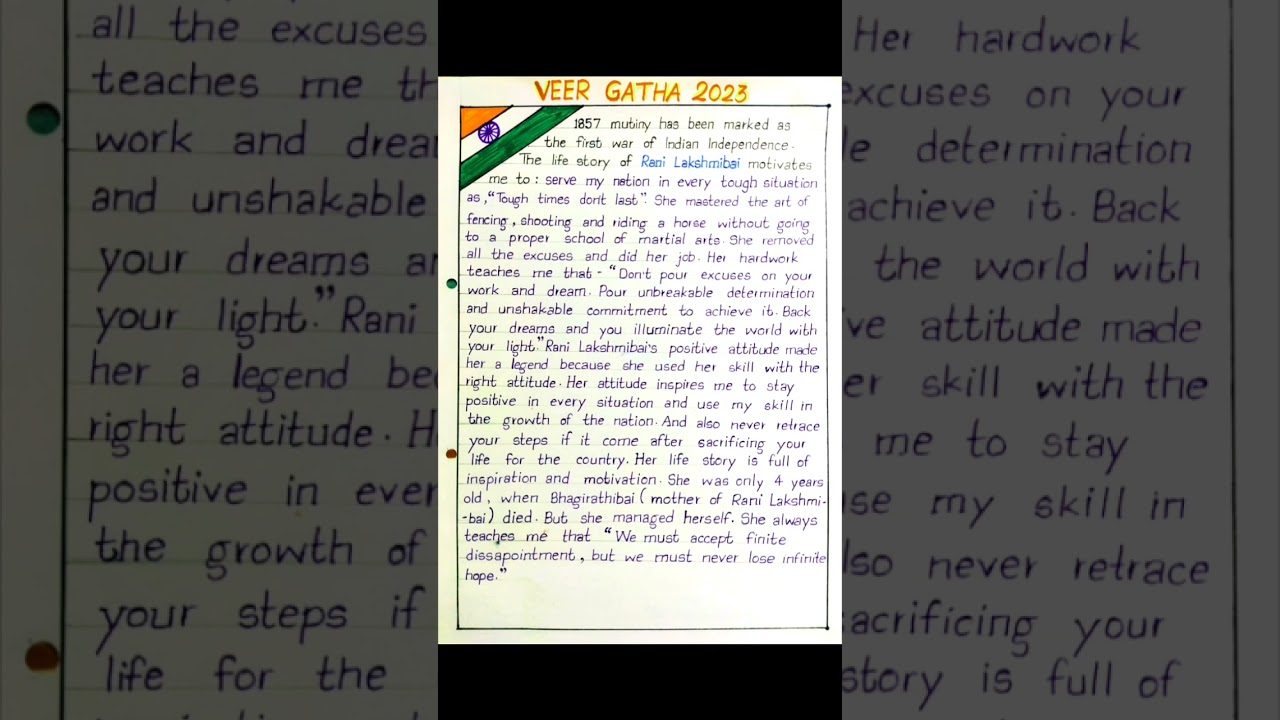 VEER GATHA 2023
1857 mutiny has been marked as
the first war of Indian Independence.
The life story of Rani Lakshmibai motivates
me to: serve my nation in every tough situation
as, "Tough times don't last". She mastered the art of
fencing, shooting and riding a horse without going
to a proper school of martial arts. She removed
all the excuses and did her job. Her hardwork
teaches me that - "Don't pour excuses on your
work and dream. Pour unbreakable determination
and unshakable commitment to achieve it. Back
your dreams and you illuminate the world with
your light." Rani Lakshmibai's positive attitude made
her a legend because she used her skill with the
right attitude. Her attitude inspires me to stay
positive in every situation and use my skill in
the growth of the nation. And also never retrace
your steps if it come after sacrificing your
life for the country. Her life story is full of
inspiration and motivation. She was only 4 years
old, when Bhagirathibai (mother of Rani Lakshmi-
-bai) died. But she managed herself. She always
teaches me that "We must accept finite
dissapointment, but we must never lose infinite
hope."